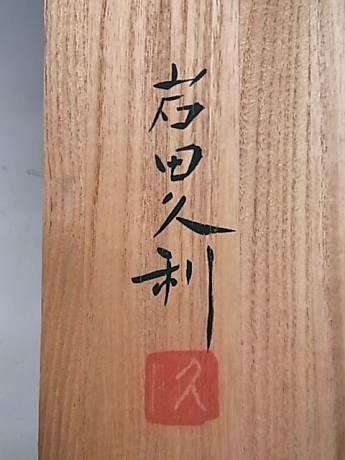 岩田久利
久